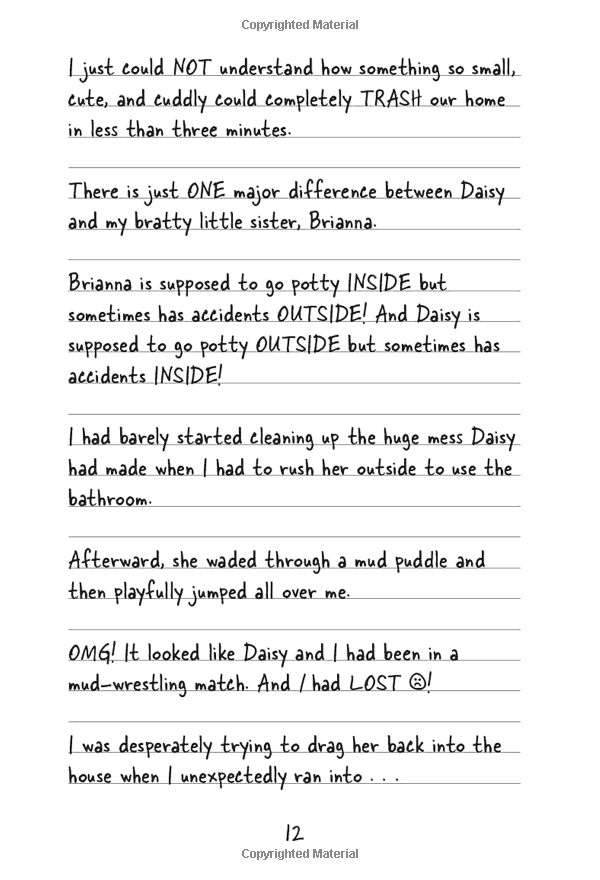 Copyrighted Material
I just could NOT understand how something so small,
cute, and cuddly could completely TRASH our home
in less than three minutes.
There is just ONE major difference between Daisy
and my bratty little sister, Brianna.
Brianna is supposed to go potty INSIDE but
sometimes has accidents OUTSIDE! And Daisy is
supposed to go potty OUTSIDE but sometimes has
accidents INSIDE!
I had barely started cleaning up the huge mess Daisy
had made when I had to rush her outside to use the
bathroom.
Afterward, she waded through a mud puddle and
then playfully jumped all over me.
OMG! It looked like Daisy and I had been in a
mud-wrestling match. And I had LOST ☹!
I was desperately trying to drag her back into the
house when I unexpectedly ran into . . .
12
Copyrighted Material